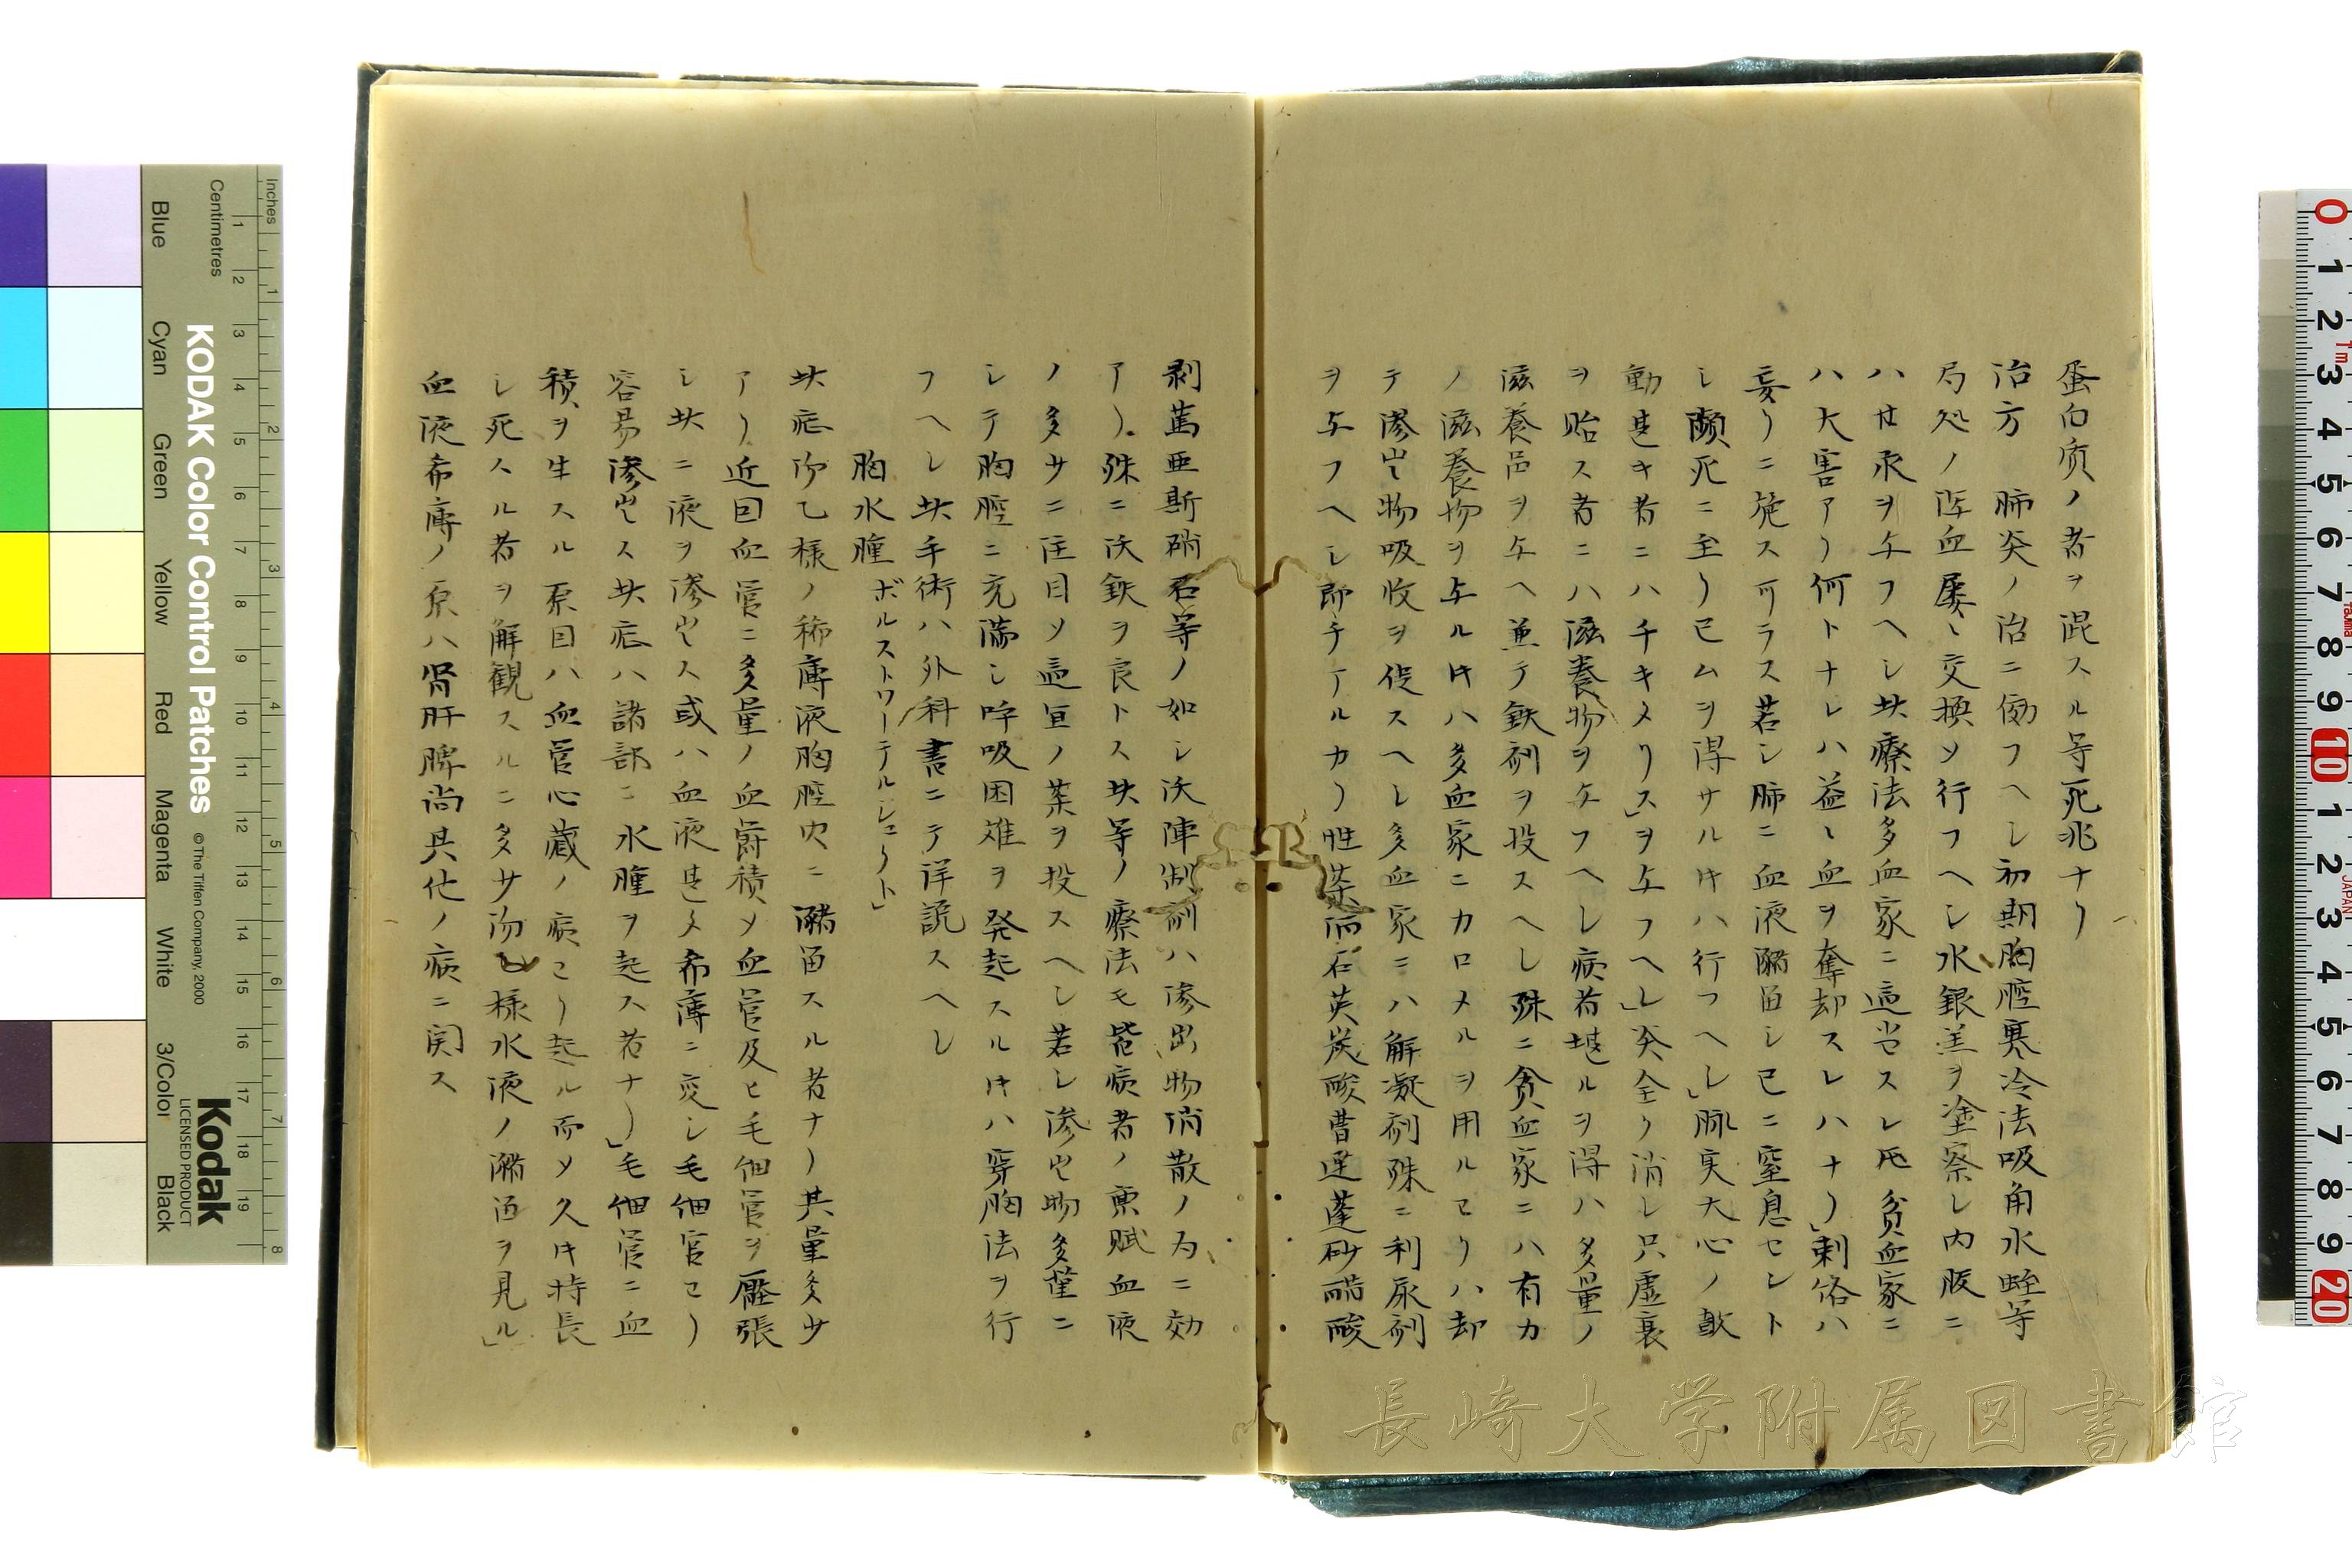 蛋白质ノ者ヲ混スル等死兆ナリ
治方 肺炎ノ治ニ倣フヘシ初期胸腔寒冷法吸角水蛭等
局処ノ瀉血屡々交換ソ行フヘシ水銀羔ヲ塗察シ内服ニ
ハ甘汞ヲ与フヘシ此療法多血家ニ適当スレ𪜈貧血家ニ
ハ大害アリ何トナレハ益々血ヲ奪却スレハナリ」刺絡ハ
妄リニ施ス可ラス若シ肺ニ血液瀦畄シ已ニ窒息セント
シ瀕死ニ至リ已ムヲ得サル𪜈ハ行フヘシ」脈実大心ノ歇
動甚キ者ニハチキタリス」ヲ与フヘシ」炎全ク消シ只虚衰
ヲ貽ス者ニハ滋養物ヲ与フヘシ病者堪ルヲ得ハ多量ノ
滋養品ヲ与ヘ兼テ鉄剤ヲ投スヘシ殊ニ貧血家ニハ有力
ノ滋養物ヲ与ル𪜈ハ多血家ニカロメルヲ用ルヿリハ却
テ滲出物吸收ヲ促スヘシ多血家ニハ解凝剤殊ニ利尿剤
ヲ与フヘシ即チアルカリ性藥𠂉石英炭酸曹達蓬砂醋酸
剥篤亜斯硝石等ノ如シ沃陣制剤ハ滲出物消散ノ為ニ効
アリ殊ニ沃鉄ヲ良トス此等ノ療法モ皆病者ノ稟賦血液
ノ多少ニ注目ソ適宜ノ藥ヲ投スヘシ若シ滲出物多量ニ
シテ胸腔ニ充満シ呼吸困難ヲ発起スル𪜈ハ穿胸法ヲ行
フヘシ此手術ハ外科書ニテ詳説スヘシ
胸水腫 ボルストワーテルシユクト」
此症所乙様ノ稀薄液胸腔内ニ瀦畄スル者ナリ其量多少
アリ近因血管ニ多量ノ血欝積ソ血管及ヒ毛細管ヲ壓張
シ此ニ液ヲ滲出ス或ハ血液甚タ希薄ニ変シ毛細官ヨリ
容易滲出ス此症ハ諸部ニ水腫ヲ起ス者ナリ」毛細管ニ血
積ヲ生スル原因ハ血管心蔵ノ病ヨリ起ル而ソ久𪜈持長
シ死スル者ヲ解観スルニ多少沕乙様水液ノ瀦畄ヲ見ル」
血液希薄ノ原ハ腎肝脾尚其他ノ病ニ関ス
Blue
Cyan
Green
Yellow
Red
Magenta
White
3/Color
Black
Centimetres
Inches
KODAK Color Control Patches
© The Tiffen Company, 2000
Kodak
LICENSED PRODUCT
JAPAN
長崎大学附属図書館